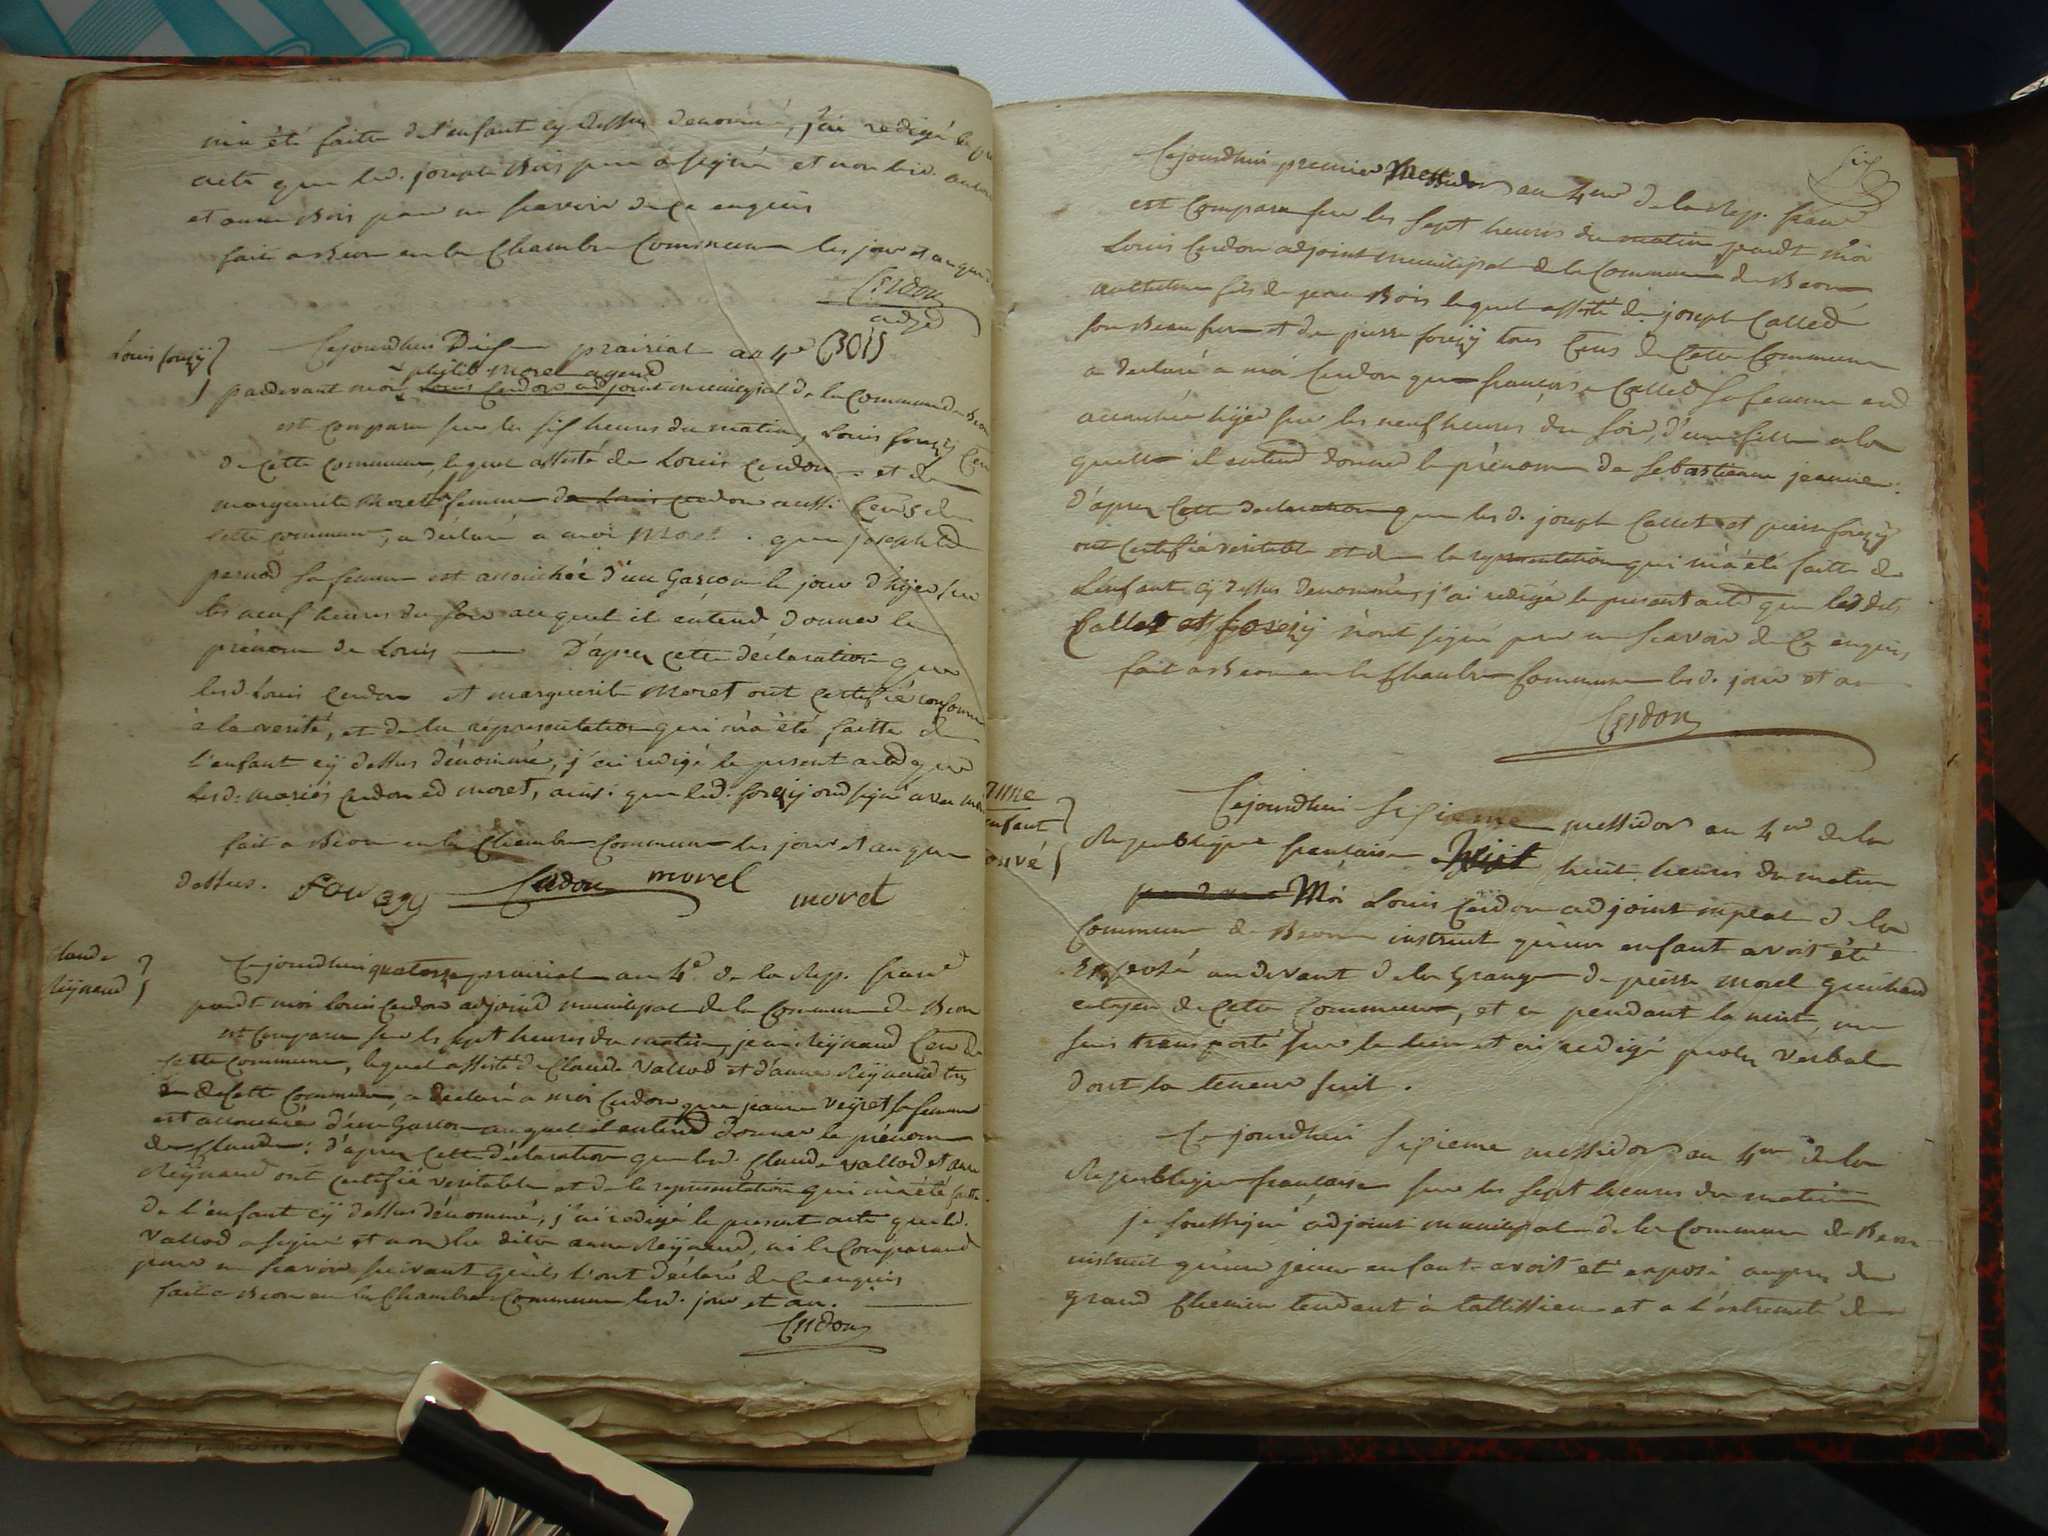 m'a été faitte de l'enfant cy dessus denommé, j'ai redigé le
acte que led. joseph Bois pere a signé et non led.
et anne Bois pour ne scavoir de ce enquis
fait a Beon en la Chambre Commune les jour et an que
Cerdon
adjt
Louis forezÿ
Cejourdhui Dix prairial an 4e BOIS
phjlib morel agend
pardevant moi Louis Cerdon adjoint municipal de la Commune de Beon
est comparu sur les six heures du matin, Louis forezÿ
de cette commune, lequel assisté de Louis cerdon et de
marguerite Moret femme de Louis cerdon aussi de
cette commune, a déclaré a moi Morel que josephte
pernod sa femme est accouchée d'un Garcon le jour d'hÿer sur
les neuf heures du soir auquel il entend donner le
prénom de Louis D'aprez cette déclaration que
lesd. Louis cerdon et marguerite Moret ont certifié conforme
à la verité, et de la représentation qui m'a été faitte de
l'enfant cÿ dessus dénommé, j'ai redigé le présent acte que
lesd. mariés cerdon et moret, ainsi que led. forezÿ ont signé avec moi
fait a Beon en la Chambre Commune les jour et an que
dessus. forezy Cerdon morel moret
Claude
Reÿnaud
Cejourdhui quatorze prairial an 4e de la Rep. franc
pardt moi Louis Cerdon adjoint municipal de la Commune de Beon
est comparu sur les sept heures du matin, jean Reÿnaud
cette commune, lequel assisté de Claude Vallod et d'anne Reÿnaud
de cette Commune, a declaré a moi Cerdon que jeanne veÿret sa femme
est accouchée d'un Garcon auquel il entend donner le prénom
de Claude: d'aprez cette déclaration que lesd. Claude vallod et anne
Reÿnaud ont certifié veritable et de la representation qui m'a été faitte
de l'enfant cÿ dessus dénommé, j'ai redigé le present acte que led.
Vallod a signé et non la ditte anne Reÿnaud, ni le Comparant
pour ne scavoir suivant qu'ils l'ont déclaré de ce enquis
fait a Beon en la Chambre Commune lesd. jour et an.
Cerdon
six
Cejourdhui premier Messidor an 4me de la Rep. franc
est Comparu sur les sept heures du matin pardt moi
Louis Cerdon adjoint municipal de la Commune de Beon
anthelme fils de jean Bois lequel assisté de joseph Callet
son Beau frere et de pierre forezÿ tous de Cette Commune
a declaré a moi Cerdon que francoise Callet sa femme est
accouchée hÿer sur les neuf heures du soir, d'une fille a la
quelle il entend donner le prénom de Sebastienne jeanne:
D'aprez Cette declaration que lesd. joseph Callet et pierre forezÿ
ont Certifié veritable et de la representation qui m'a été faitte de
L'enfant cÿ dessus denommé, j'ai redigé le present acte que lesdits
Callet et forezÿ n'ont signé pour ne scavoir de Ce enquis,
fait a Beon en la Chambre Commune lesd. jour et an
Cerdon
une
enfant
Cejourdhui sixieme messidor an 4me de la
Republique francaise huit heures du matin
pardevant Moi Louis Cerdon adjoint mpeal de la
Commune de Beon instruit qu'un enfant avoit été
Exposé au devant de la Grange de pierre morel guichard
citoyen de Cette Commune, et ce pendant la nuit, me
suis transporté sur le lieu et ai redigé procez verbal
dont la teneur suit.
Cejourdhui sixieme messidor an 4me de la
Republique francaise sur les sept heures du matin
je soussigné adjoint municipal de la Commune de Beon
instruit qu'un jeune enfant avoit eté exposé auprez du
grand Chemin tendant à tallissieu et a l'extremité de